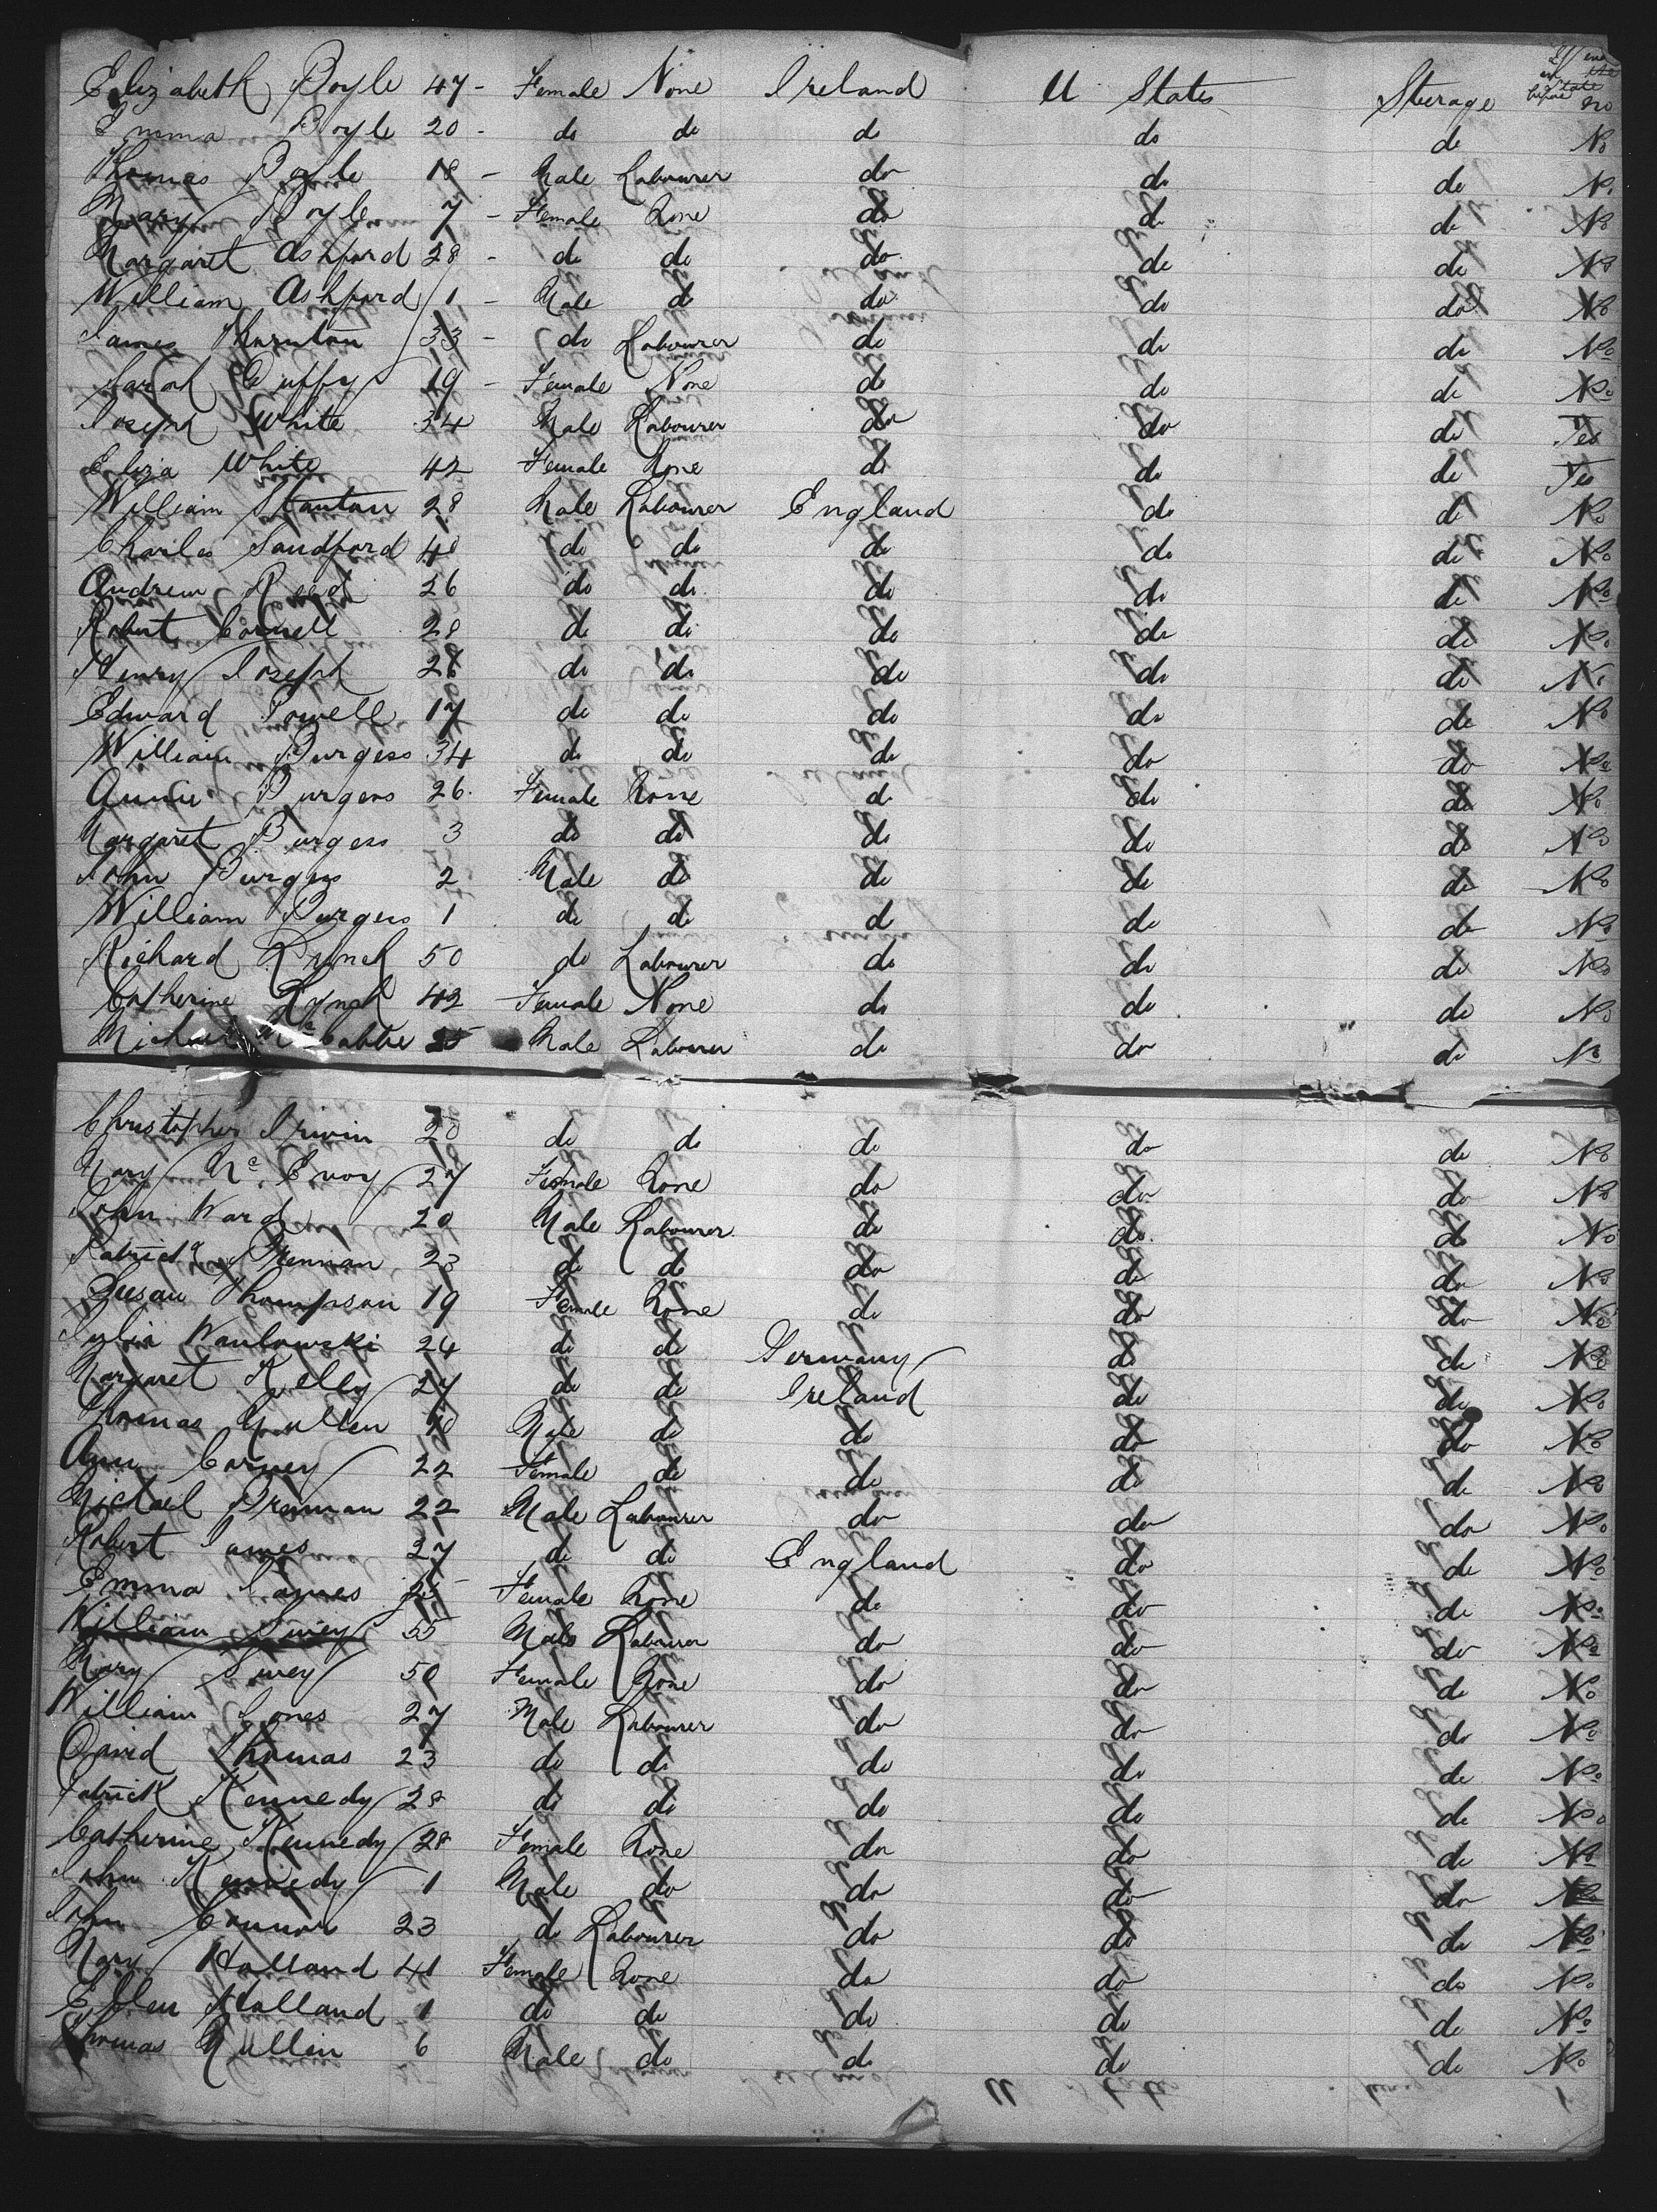 If ever in the State before
Elizabeth Boyle 47 - Female None Ireland U States Steerage no
Emma Boyle 20 - do do do do do No
Thomas Boyle 18 - Male Labourer do do do No
Mary Boyle 7 - Female None do do do No
Margaret Ashford 28 - do do do do do No
William Ashford 1 - Male do do do do No
James Thornton 33 - do Labourer do do do No
Sarah Duffy 19 - Female None do do do No
Joseph White 34 Male Labourer do do do Yes
Eliza White 42 Female None do do do Yes
William Stanton 28 Male Labourer England do do No
Charles Sandford 40 do do do do do No
Andrew Reed 26 do do do do do No
Robert Cornell 28 do do do do do No
Henry Joseph 28 do do do do do No
Edward Powell 17 do do do do do No
William Burgess 34 do do do do do No
Annie Burgess 26 Female None do do do No
Margaret Burgess 3 do do do do do No
John Burgess 2 Male do do do do No
William Burgess 1 do do do do do No
Richard Lynch 50 do Labourer do do do No
Catherine Lynch 42 Female None do do do No
Michael Mc Cabbe 25 Male Labourer do do do No
Christopher Irwin 20 do do do do do No
Mary Mc Evoy 27 Female None do do do No
John Ward 20 Male Labourer do do do No
Patrick Brennan 23 do do do do do No
Susan Thompson 19 Female None do do do No
Julia Wanlowski 24 do do Germany do do No
Margaret Kelly 27 do do Ireland do do No
Thomas Mullen 10 Male do do do do No
Ann Carney 22 Female do do do do No
Michael Brennan 22 Male Labourer do do do No
Robert James 27 do do England do do No
Emma James 25 Female None do do do No
William 55 Male Labourer do do do No
Mary 50 Female None do do do No
William Jones 27 Male Labourer do do do No
David Thomas 23 do do do do do No
Patrick Kennedy 28 do do do do do No
Catherine Kennedy 28 Female None do do do No
John Kennedy 1 Male do do do do No
John Connor 23 do Labourer do do do No
Mary Holland 41 Female None do do do No
Ellen Holland 1 do do do do do No
Thomas Mullin 6 Male do do do do No